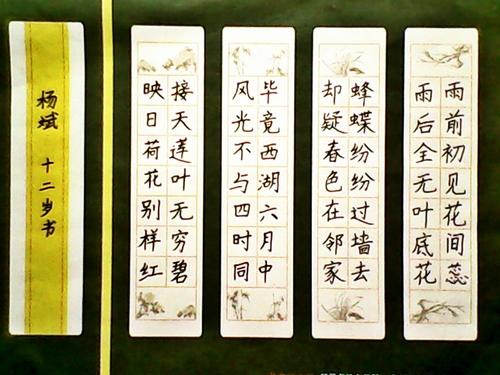 雨前初见花间蕊
雨后全无叶底花
蜂蝶纷纷过墙去
却疑春色在邻家
毕竟西湖六月中
风光不与四时同
接天莲叶无穷碧
映日荷花别样红
杨斌 十二岁书